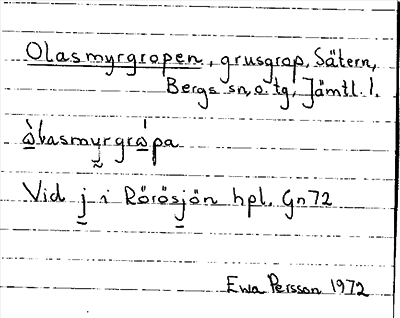 Olasmyrgropen, grusgrop, Sätern,
Bergs sn, o. tg, Jämtl. l.
òlasmyrgròpa
Vid j i Rörösjön hpl. Gn72
Ewa Persson 1972